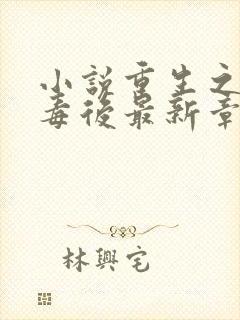 小說重生之
毒後最新章
林興宅